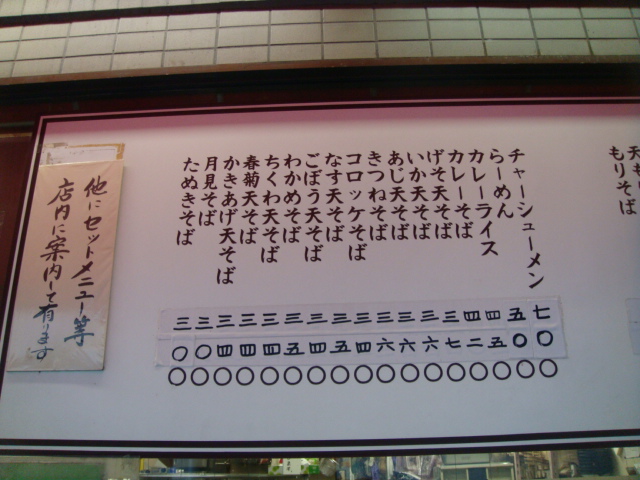 もりそば
チャーシューメン 七〇〇
らーめん 五〇〇
カレーライス 四五〇
カレーそば 四二〇
げそ天そば 三七〇
いか天そば 三六〇
あじ天そば 三六〇
きつねそば 三六〇
コロッケそば 三四〇
なす天そば 三五〇
ごぼう天そば 三四〇
わかめそば 三五〇
ちくわ天そば 三四〇
春菊天そば 三四〇
かきあげ天そば 三四〇
月見そば 三〇〇
たぬきそば 三〇〇
他にセットメニュー等
店内に案内して有ります